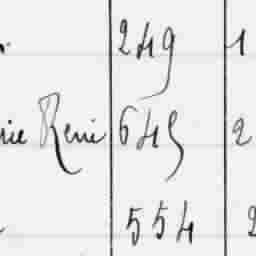 249 1
rie René 645 2
554 2